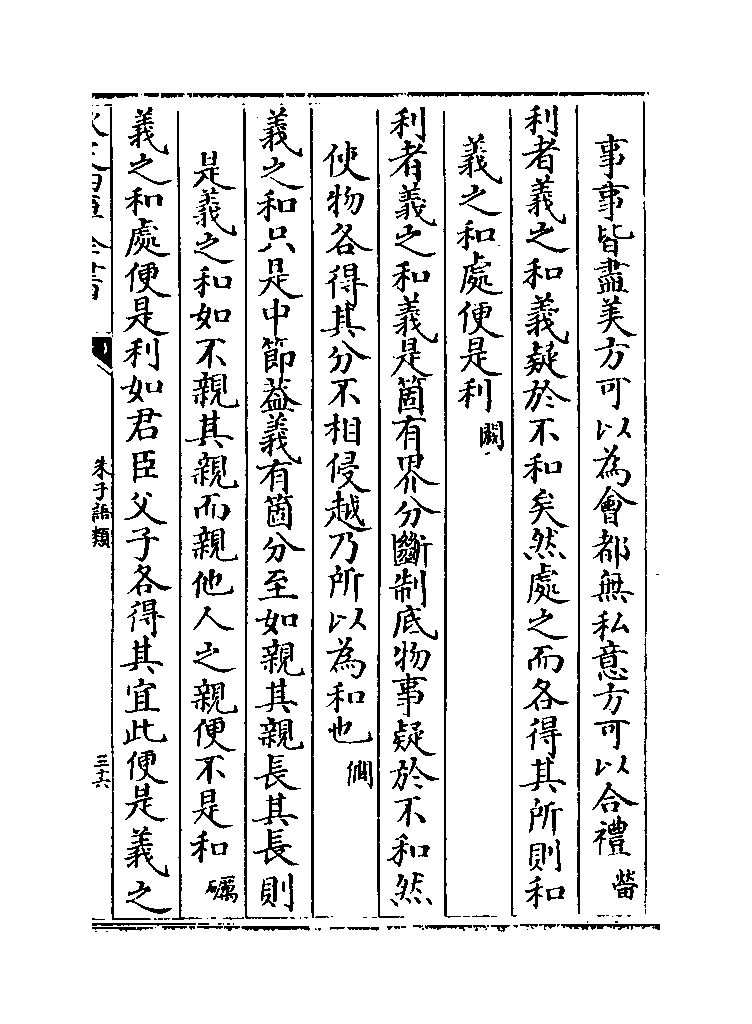 事事皆盡美方可以為會都無私意方可以合禮㽦
利者義之和義疑於不和矣然處之而各得其所則和
義之和處便是利閎
利者義之和義是箇有界分斷制底物事疑於不和然
使物各得其分不相侵越乃所以為和也僩
義之和只是中節葢義有箇分至如親其親長其長則
是義之和如不親其親而親他人之親便不是和礪
義之和處便是利如君臣父子各得其宜此便是義之
朱子語類
三十六